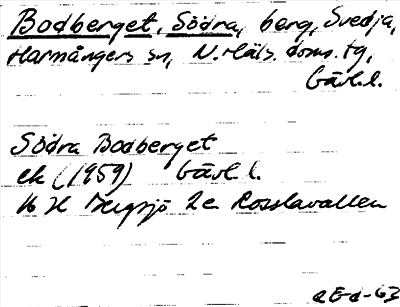 Bodberget, Södra, berg, Svedja,
Harmångers sn, N. Häls. doms. tg,
Gävl.l.
Södra Bodberget
ek (1959) Gävl. l.
16 H Bergsjö 2e Rosslavallen